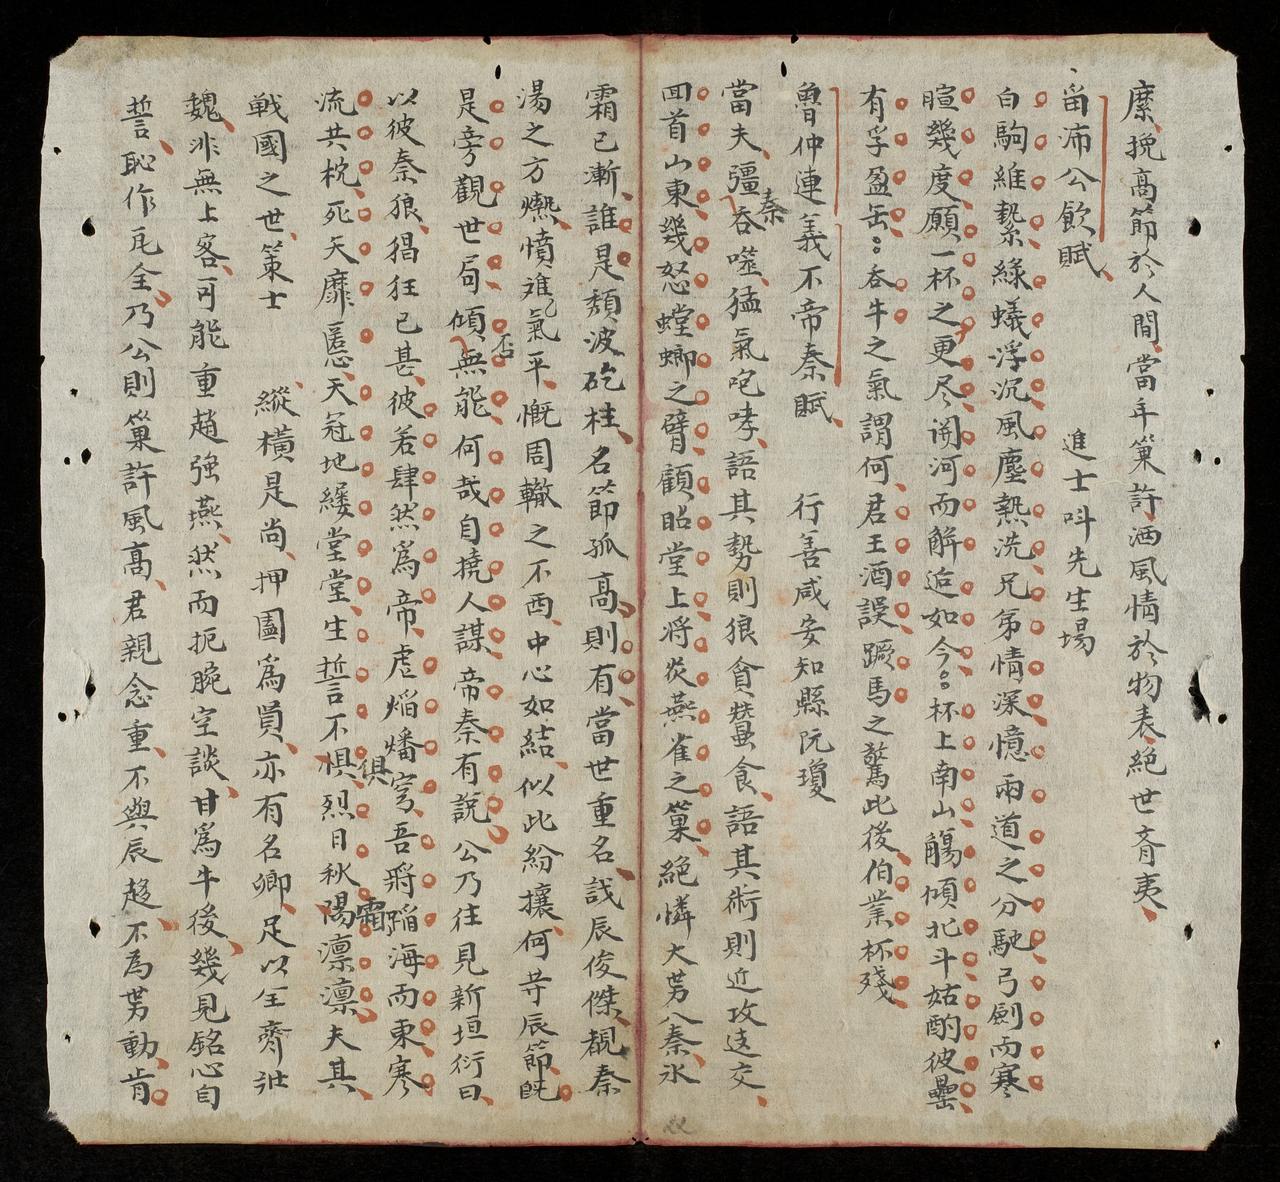 縻挽高節於人間當年巢許洒風情於物表絕世齊夷
留沛公飲賦 進士科先生場
白駒維縶綠蟻浮沉風塵熟洗兄弟情深憶兩道之分馳弓劍而寒
暄幾度願一杯之更尽関河而觧逅如今杯上南山觴傾北斗姑酌彼罍
有孚盈缶吞牛之氣謂何君王酒誤蹶馬之驚此後伯業杯殘
魯仲連義不帝秦賦 行善咸安知縣阮瓊
當夫彊秦吞噬猛氣咆哮語其勢則狼貪蠶食語其術則近攻遠交
回首山東幾怒螳螂之臂顧昭堂上将炎燕雀之巢絶憐大势入秦氷
霜已漸誰是頽波砥柱名節孤高則有當世重名誢辰俊傑覩秦
湯之方爕憤难氣平慨周轍之不西中心如結似此紛攘何等辰節旣
是旁觀世局傾否無能何哉自撓人謀帝秦有說公乃往見新垣衍曰
以彼秦狼猖狂已甚彼若肆然爲帝虐焰燔穹吾將蹈海而東寒
流共枕死天靡慝天冠地縷堂堂生誓不俱烈日秋霜凛凛夫其
戦國之世策士 縱横是尚押圄爲賞亦有名卿足以全齊詆
魏非無上客可能重趙強燕然而扼腕空談甘爲牛後幾見銘心自
誓恥作瓦全乃公則巢許風高君親念重不與辰趍不為势動肯